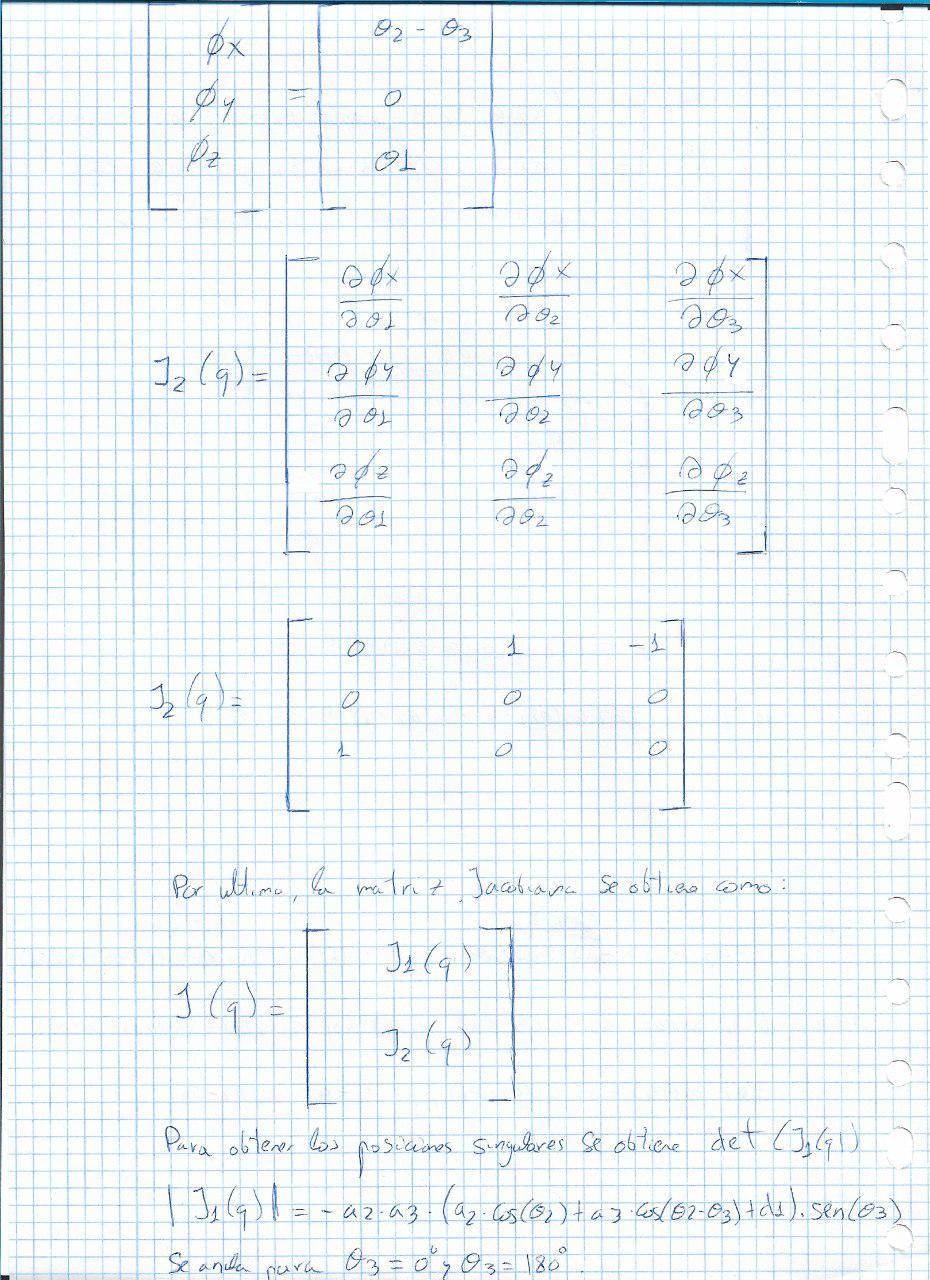 ϕx θ2 - θ3
ϕy = 0
ϕz θ1
∂ϕx/∂θ1 ∂ϕx/∂θ2 ∂ϕx/∂θ3
J2 (q) = ∂ϕy/∂θ1 ∂ϕy/∂θ2 ∂ϕy/∂θ3
∂ϕz/∂θ1 ∂ϕz/∂θ2 ∂ϕz/∂θ3
0 1 -1
J2 (q) = 0 0 0
1 0 0
Por ultimo, la matriz Jacobiana se obtiene como:
J1 (q)
J (q) =
J2 (q)
Para obtener las posiciones singulares se obtiene det (J1(q))
| J1(q) | = - a2 · a3 · (a2 · cos(θ2) + a3 · cos(θ2-θ3) + d1) · sen(θ3)
Se anula para θ3 = 0° y θ3 = 180°.